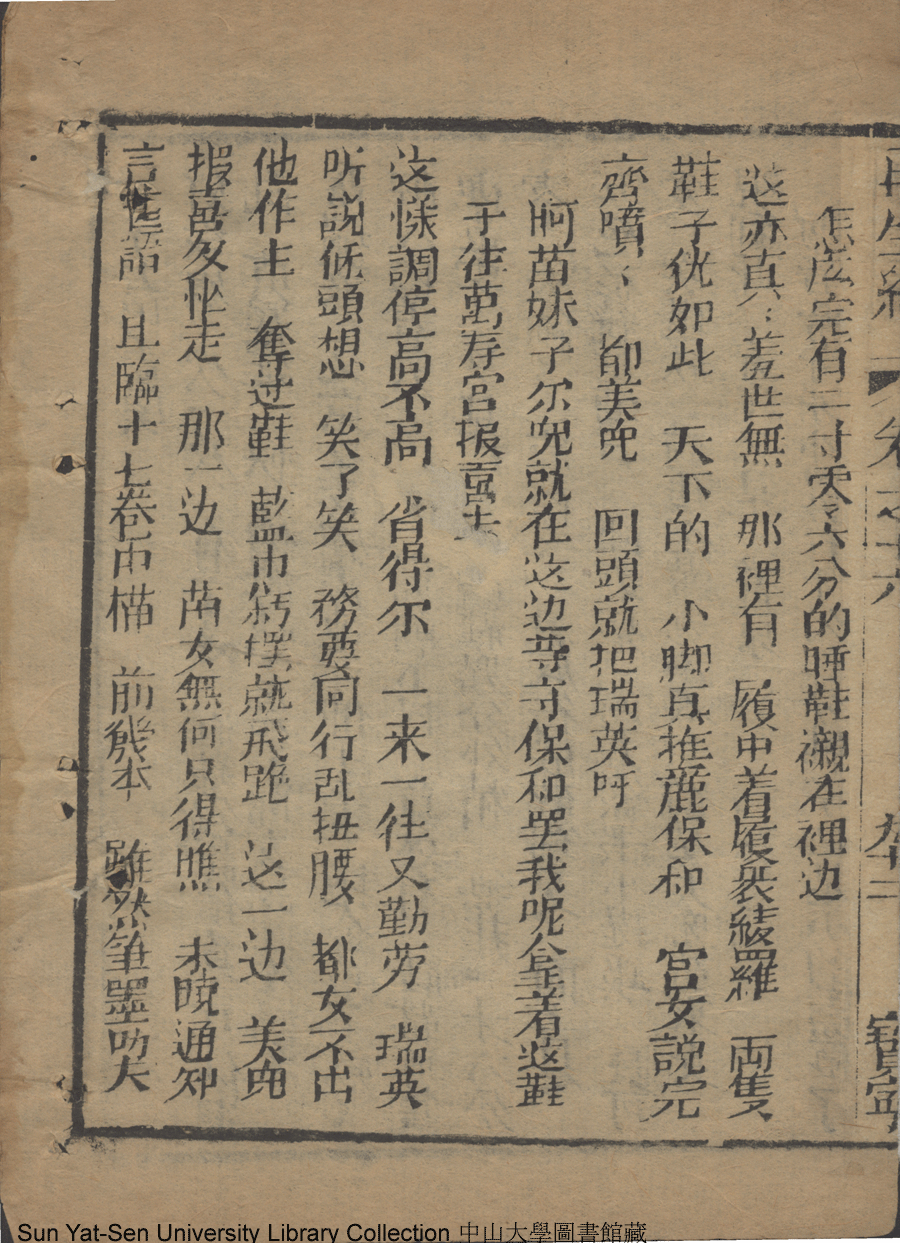 再生緣 卷之十六 九十二 寶寧
怎庅完有二寸零六分的睡鞋襯在裡边
这亦真〻羞世無 那裡有 履中着履裘綾羅 両隻
鞋子优如此 天下的 小脚真推麗保和 宫女説完
齊嘖〻 都美児 回頭就把瑞英吁
啊苗妹子尔児就在这边尊守保和罢我呢拿着这鞋
于往萬寿宫报喜去
这樣調停高不高 省得尔 一来一往又勤劳 瑞英
听説低頭想 笑了笑 務要同行乱扭腰 都女不出
他作主 奪过鞋 藍巾斜撲就飛跑 这一边 美児
报喜匆忙走 那一边 苗女無何只得瞧 未曉通知
言何語 且臨十七卷再描 前幾本 雖然筆墨功夫
Sun Yat-Sen University Library Collection 中山大學圖書館藏